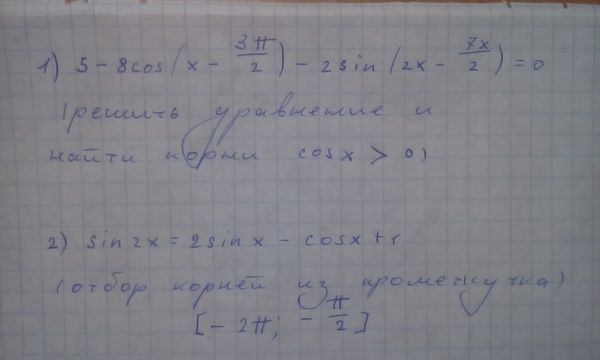 1) 5 - 8cos(x - 3π/2) - 2sin(2x - 7x/2) = 0
(решить уравнение и
найти корни cosx > 0)
2) sin2x = 2sinx - cosx + 1
(отбор корней из промежутка)
[-2π; -π/2]